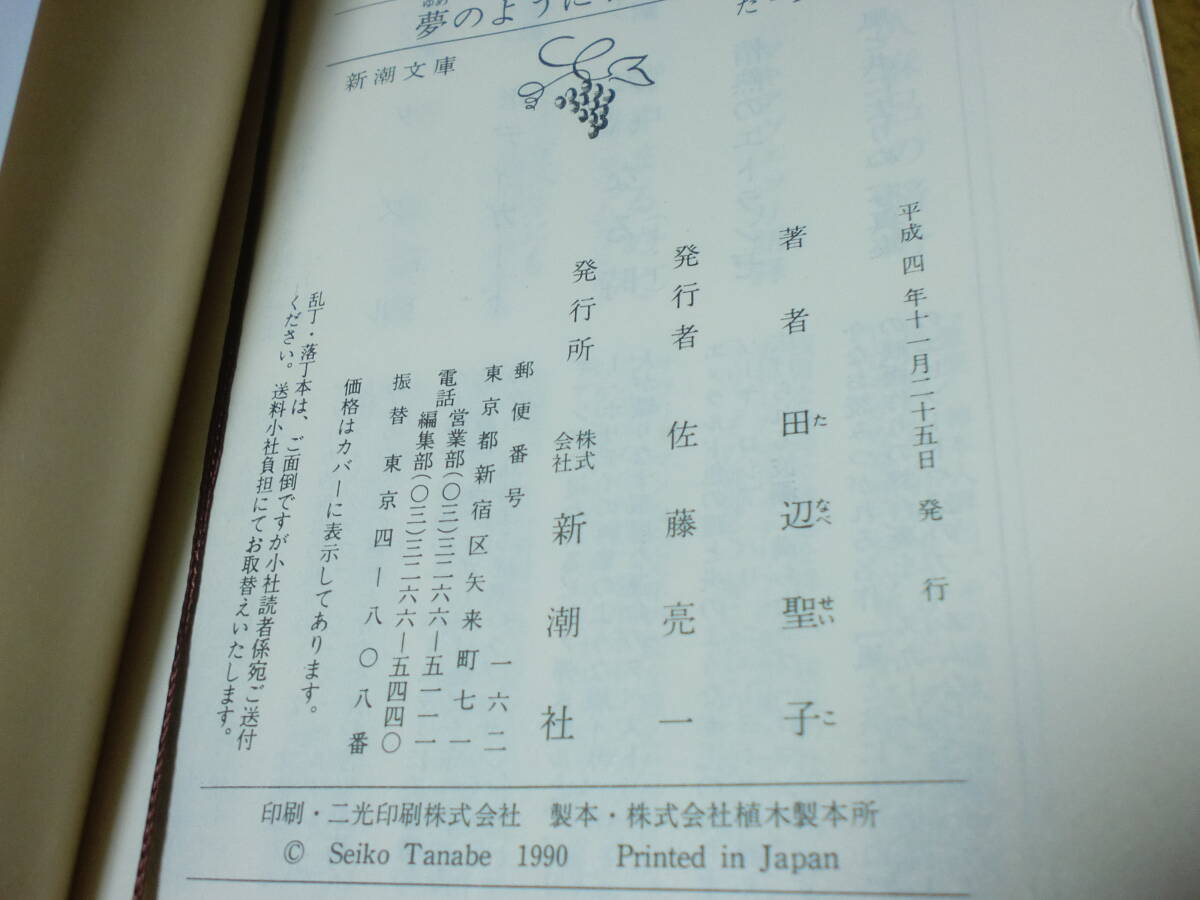 夢のように
新潮文庫
平成四年十一月二十五日 発行
著者 田辺聖子
たなべせいこ
発行者 佐藤亮一
発行所 株式会社 新潮社
郵便番号 一六二
東京都新宿区矢来町七一
電話 営業部(〇三)三二六六—五一一一
編集部(〇三)三二六六—五四四〇
振替 東京四—八〇八番
価格はカバーに表示してあります。
乱丁・落丁本は、ご面倒ですが小社読者係宛ご送付
ください。送料小社負担にてお取替えいたします。
印刷・二光印刷株式会社 製本・株式会社植木製本所
© Seiko Tanabe 1990 Printed in Japan